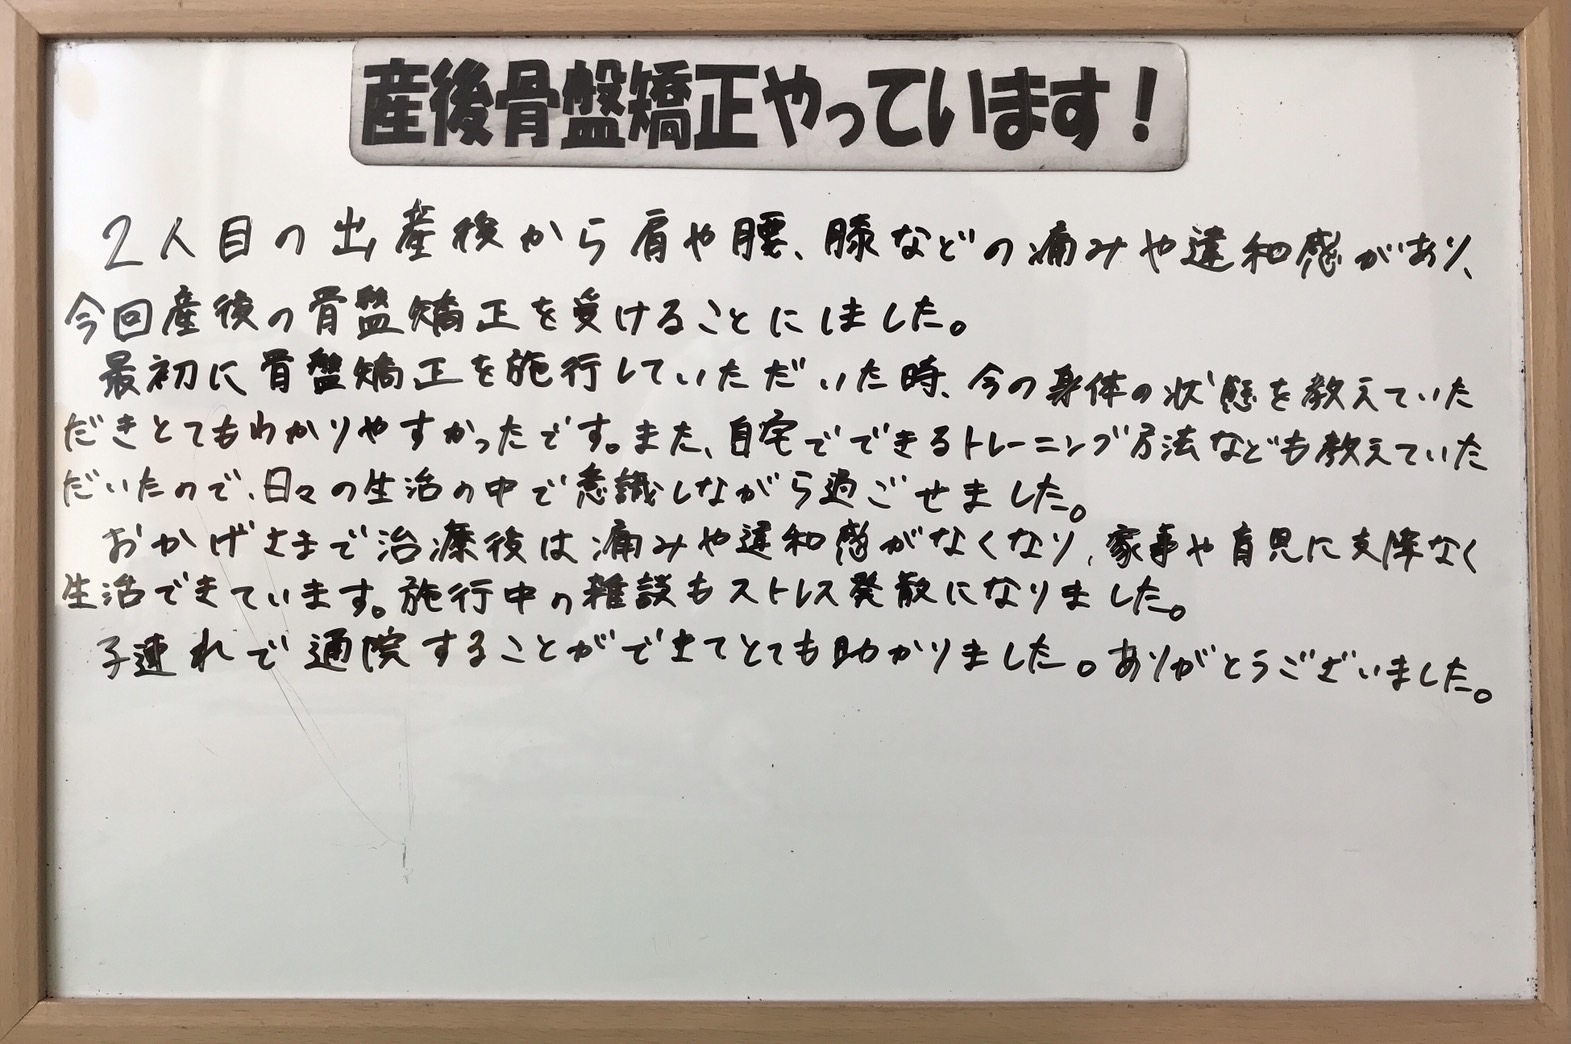 産後骨盤矯正やっています!
2人目の出産後から肩や腰、膝などの痛みや違和感があり、
今回産後の骨盤矯正を受けることにしました。
最初に骨盤矯正を施行していただいた時、今の身体の状態を教えていた
だきとてもわかりやすかったです。また、自宅でできるトレーニング方法なども教えていた
だいたので、日々の生活の中で意識しながら過ごせました。
おかげさまで治療後は痛みや違和感がなくなり、家事や育児に支障なく
生活できています。施行中の雑談もストレス発散になりました。
子連れで通院することができてとても助かりました。ありがとうございました。